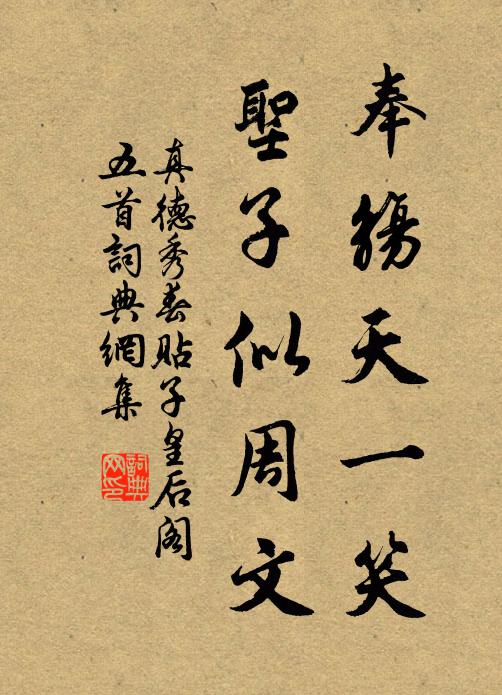 奉觴天一笑
聖子似周文
真德秀春貼子皇后阁
五首詞典網集
詞典
网印